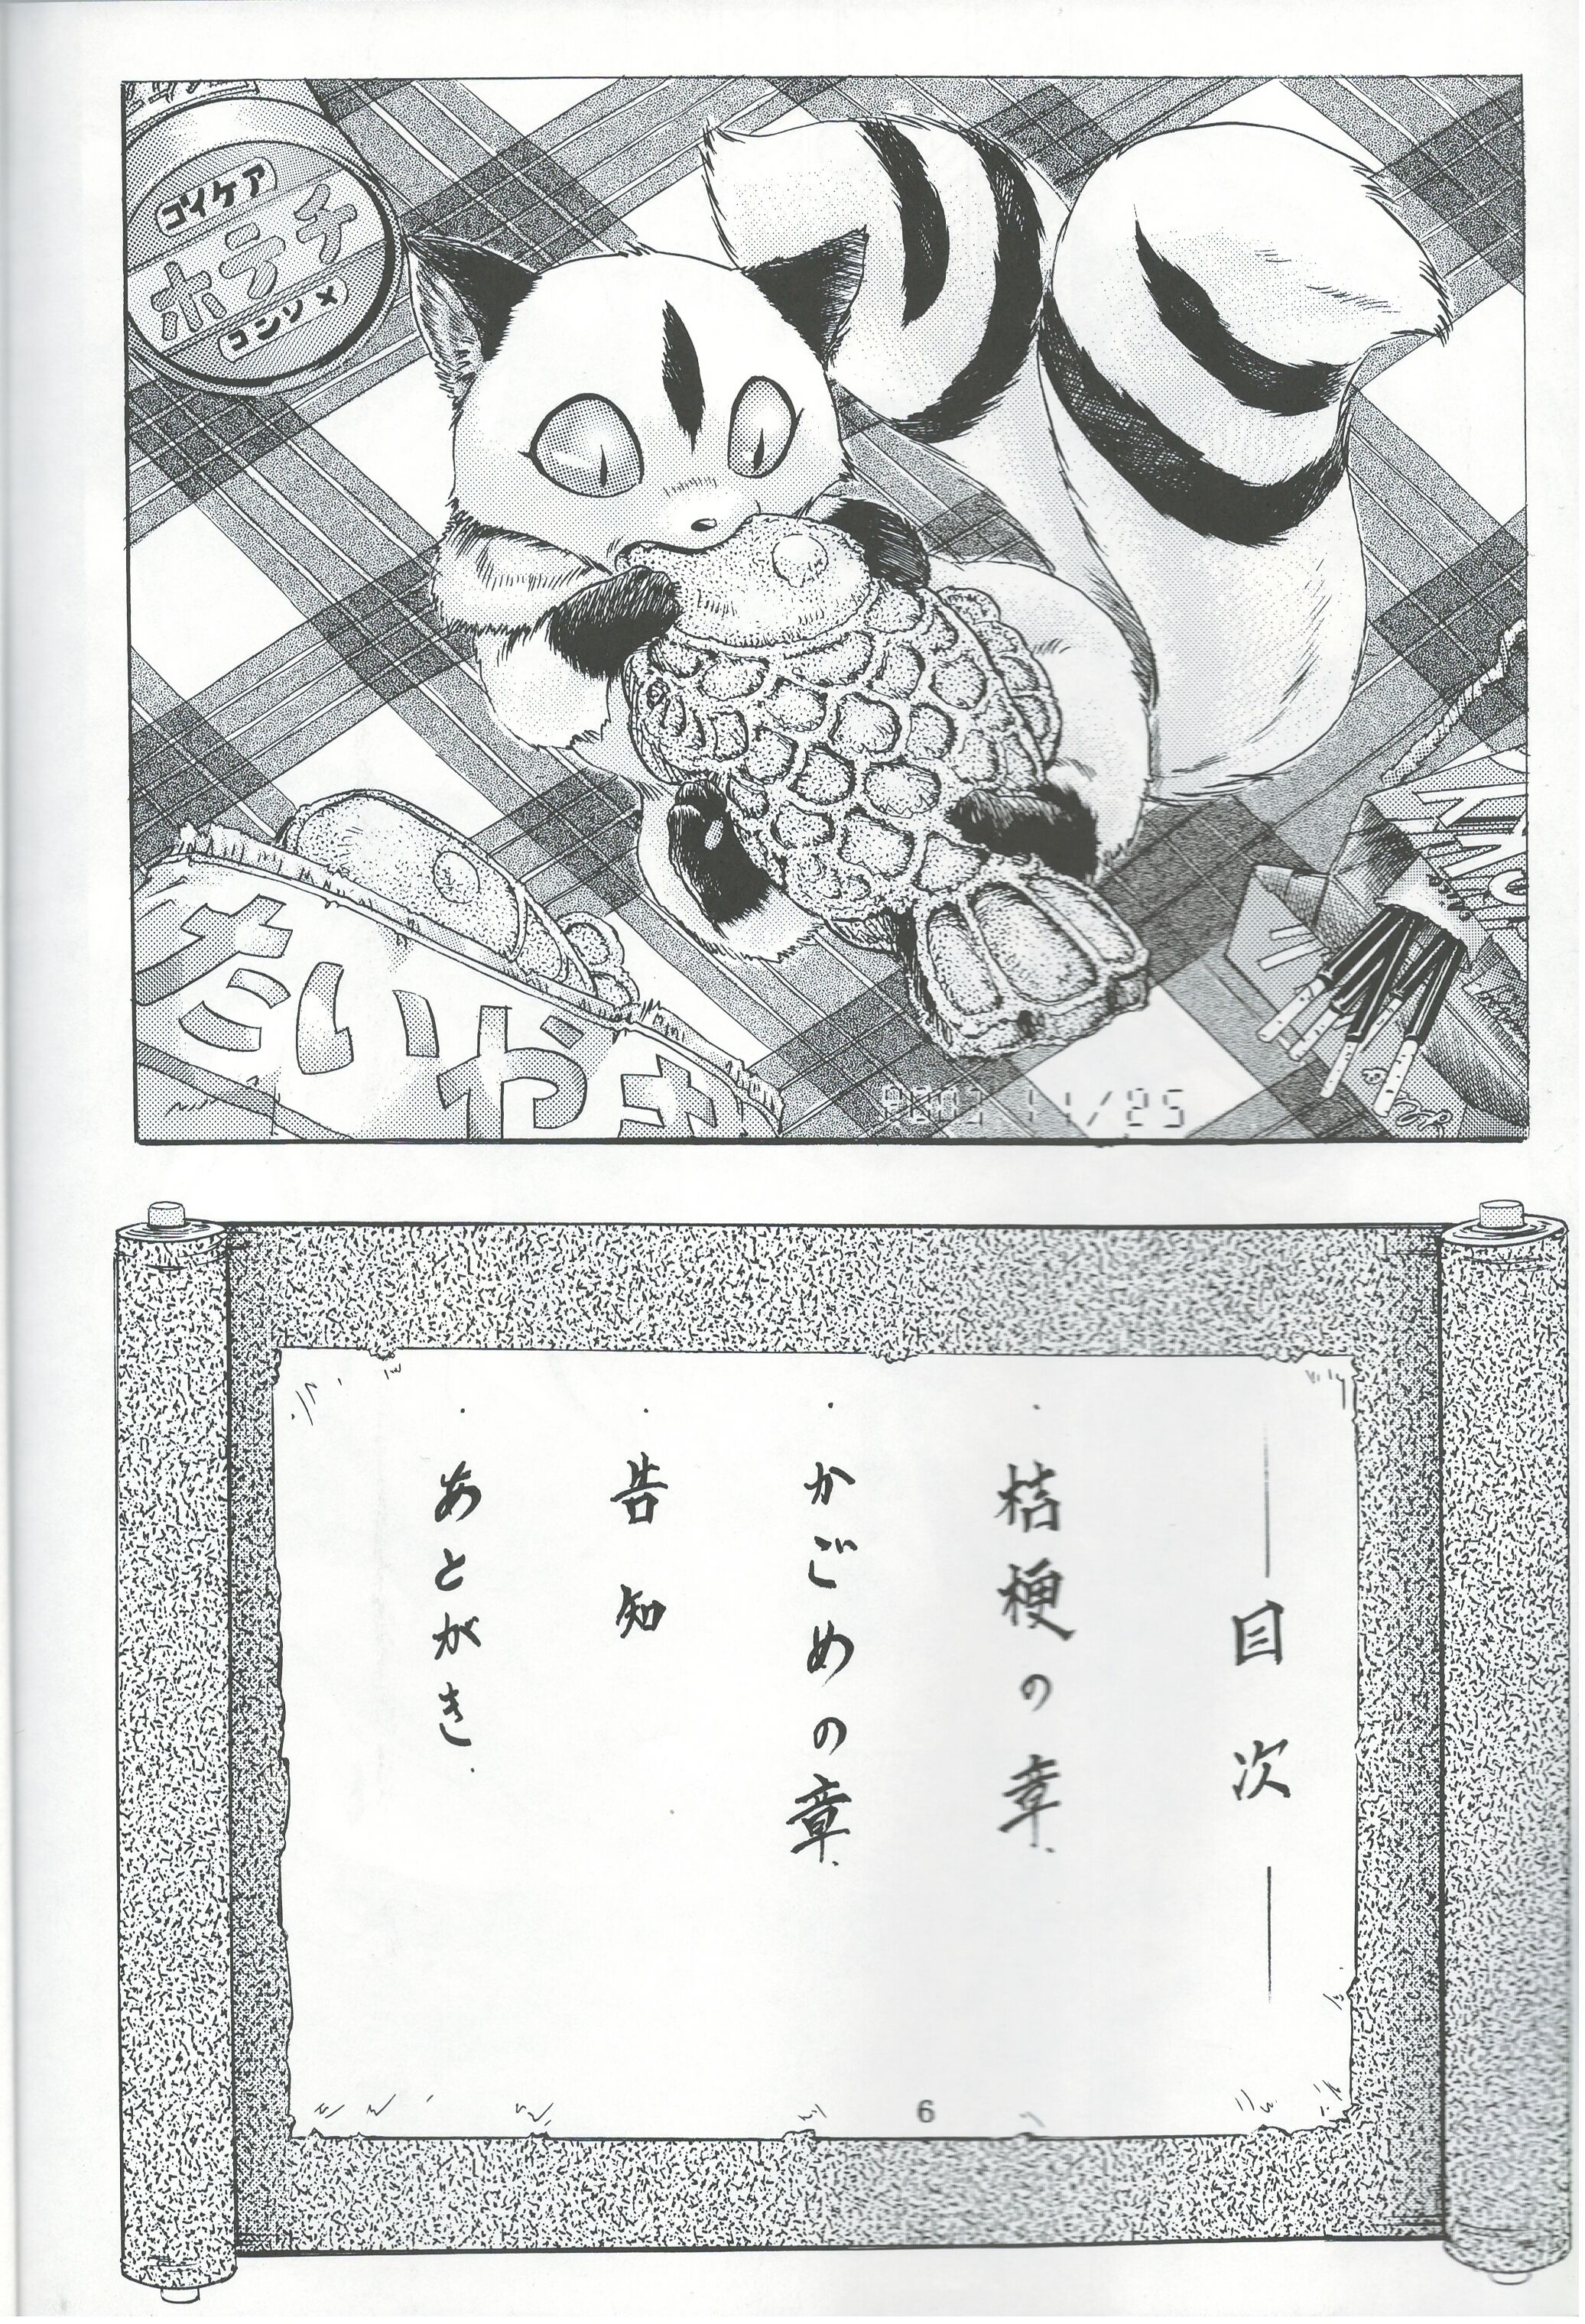 コイケア
ポテチ
コンソメ
たいやき
2002 11/25
目次
・桔梗の章
・かごめの章
・告知
・あとがき
6